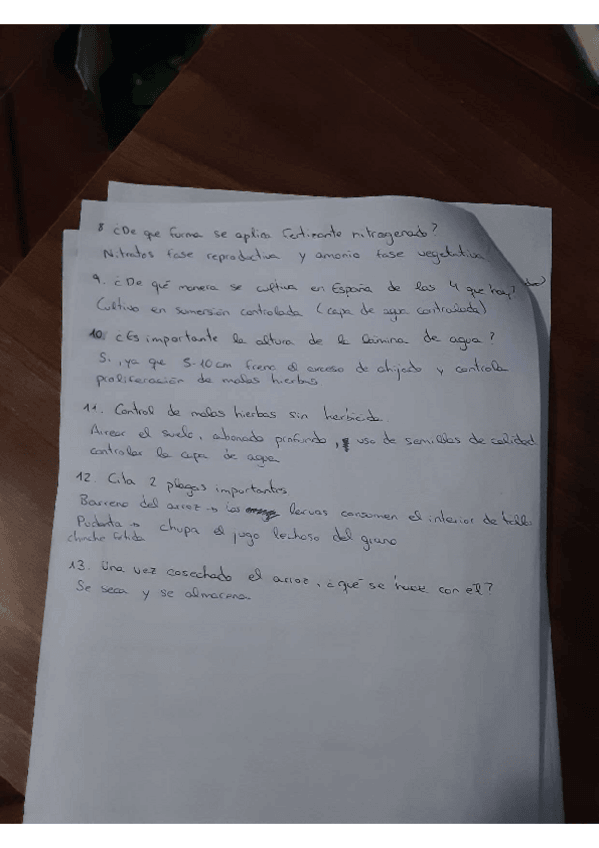 8 ¿De que forma se aplica fertilizante nitrogenado?
Nitratos fase reproductiva y amonio fase vegetativa
9. ¿De qué manera se cultiva en España de las 4 que hay?
Cultivo en sumersión controlada (capa de agua controlada)
10. ¿Es importante la altura de la lámina de agua?
Si, ya que 5-10cm frena el exceso de ahijado y controla
proliferación de malas hierbas
11. Control de malas hierbas sin herbicida.
Airear el suelo, abonado profundo, uso de semillas de calidad
controlar la capa de agua
12. Cita 2 plagas importantes.
Barreno del arroz → las larvas consumen el interior de tallo
Pudenta → chupa el jugo lechoso del grano
chinche fétida
13. Una vez cosechado el arroz, ¿qué se hace con el?
Se seca y se almacena